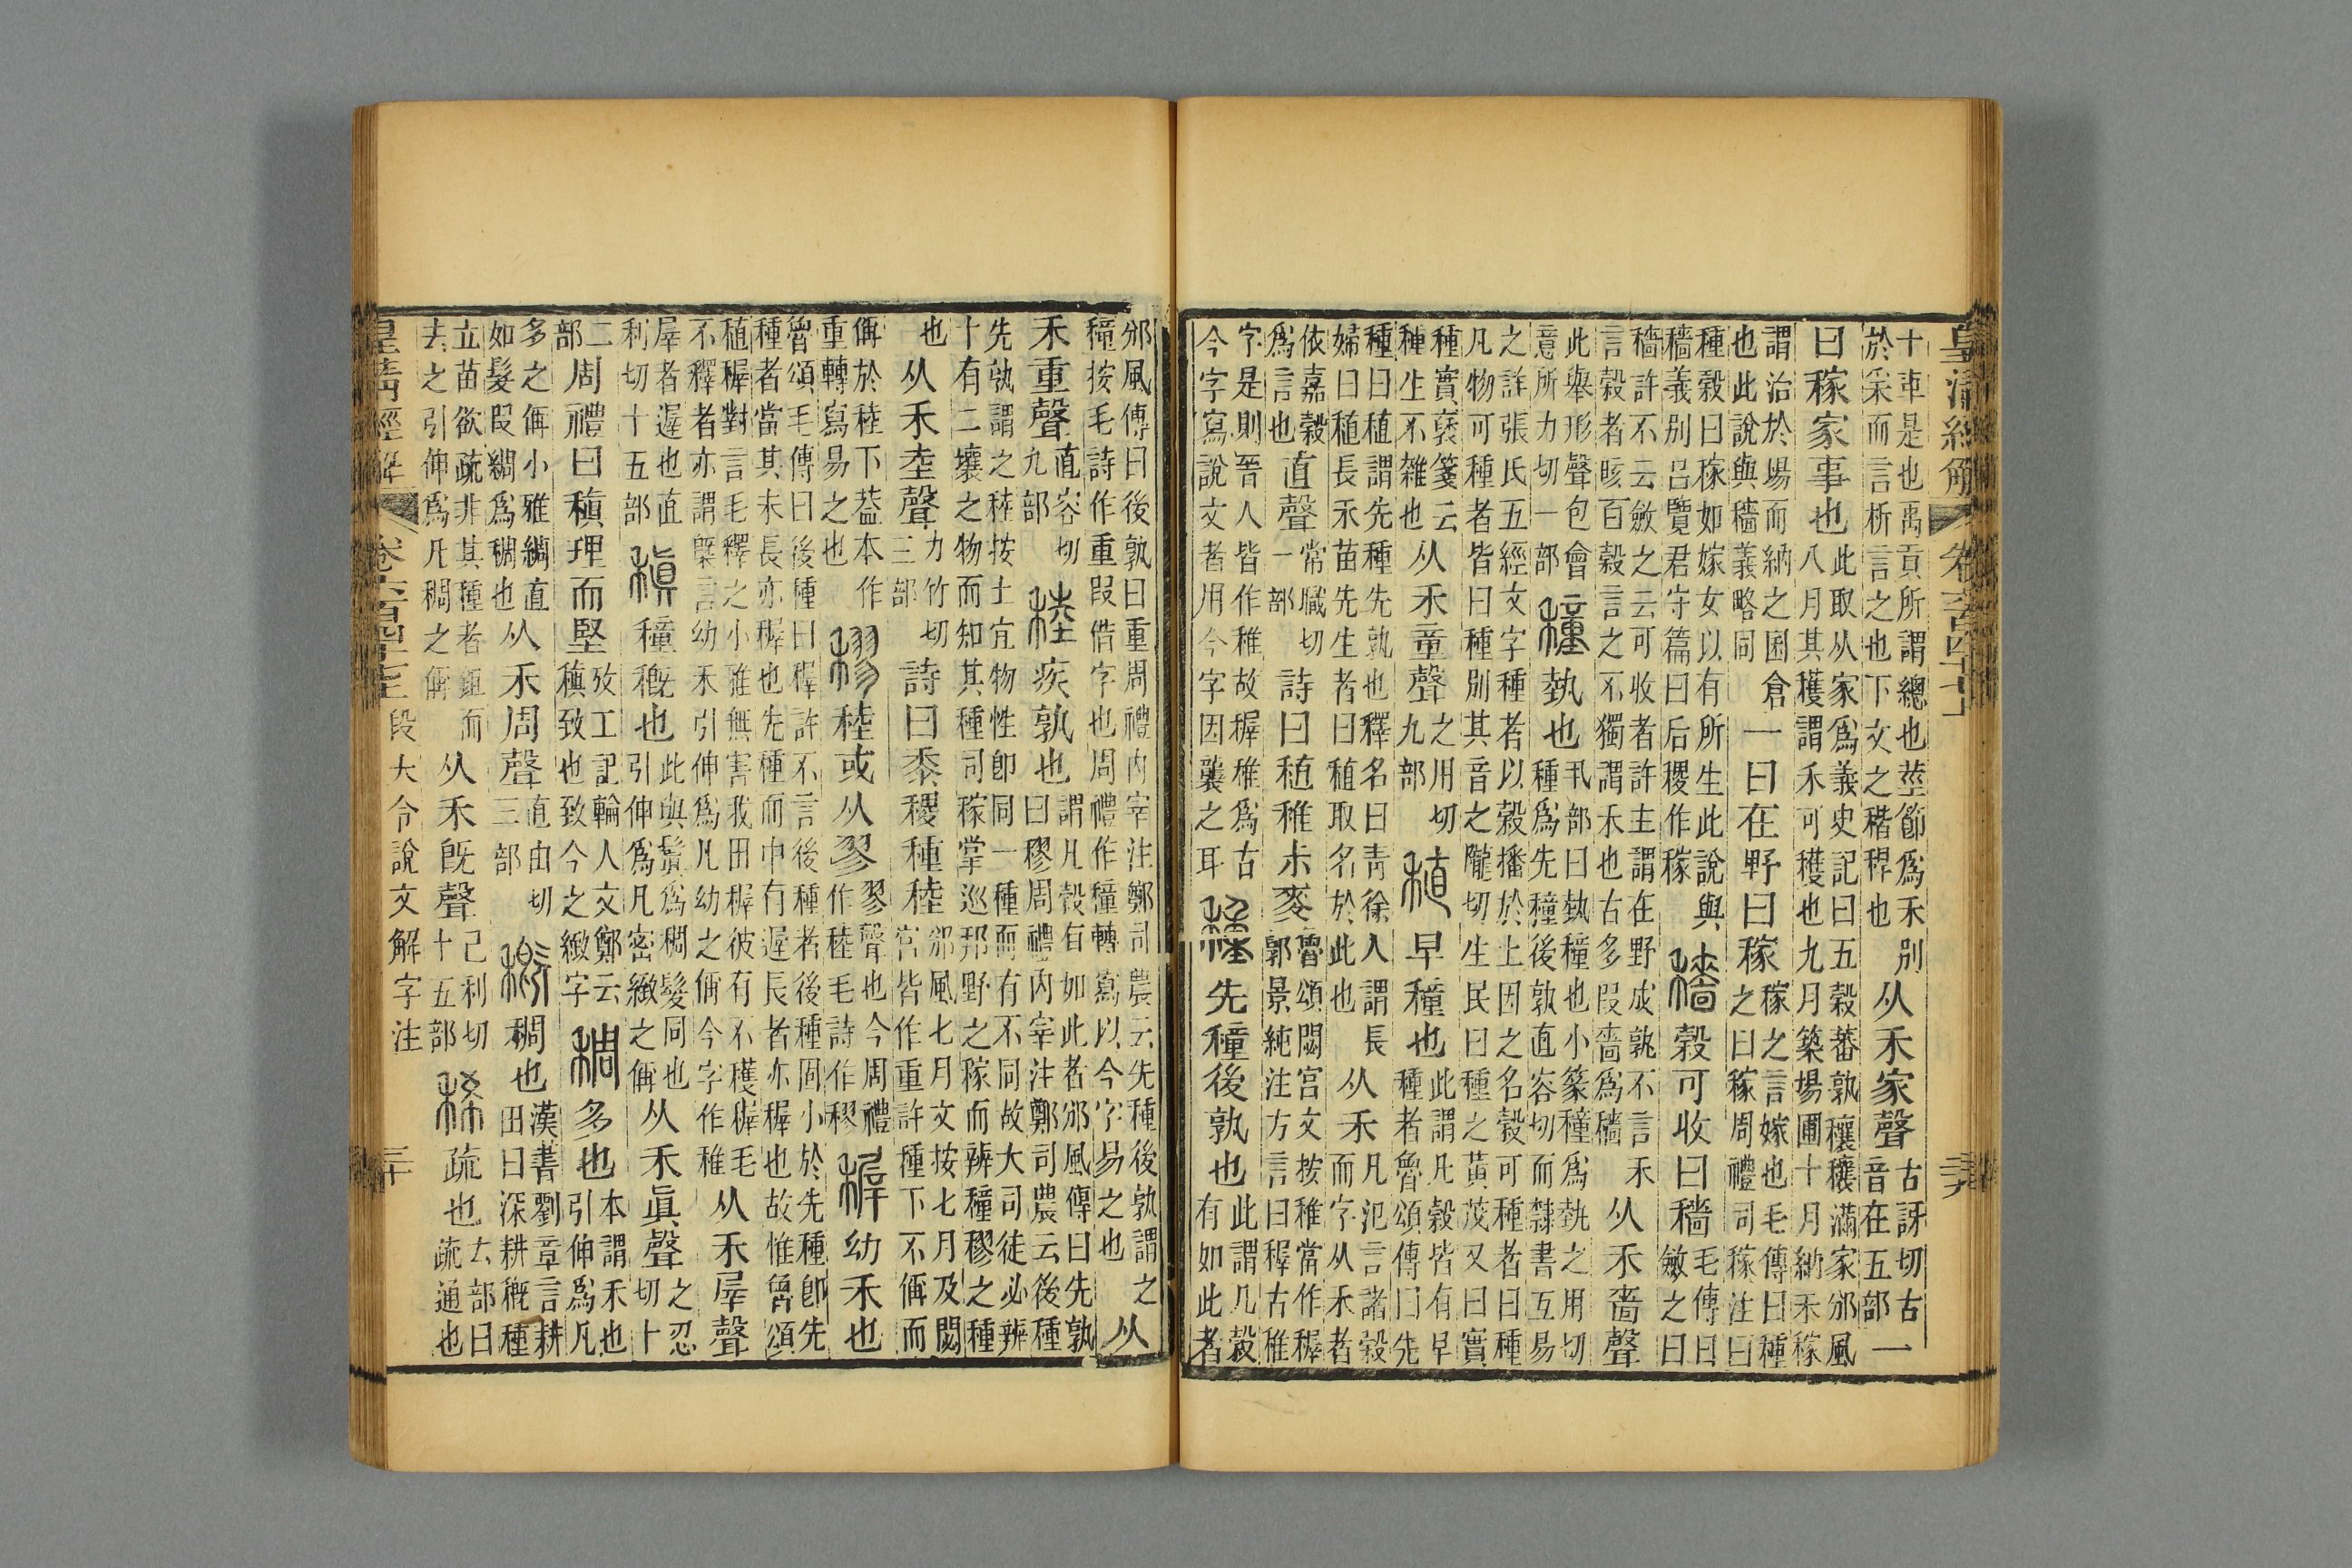 皇清經解 卷六百四十七 二十九
十車是也禹貢所謂總也莖節爲禾別於采而言析言之也下文之稭稈也从禾家聲古訝切古音在五部一
曰稼家事也此取从家爲義史記曰五穀蕃孰穰穰滿家邠風八月其穫謂禾可穫也九月築場圃十月納禾稼
謂治於場而納之囷倉也此說與穡義略同一曰在野曰稼稼之言嫁也毛傳曰種之曰稼周禮司稼注曰
種穀曰稼如嫁女以有所生此說與穡義別呂覽君守篇曰后稷作稼穡穀可收曰穡毛傳曰斂之曰
穡許不云斂之云可收者許主謂在野成孰不言禾言穀者晐百穀言之不獨謂禾也古多叚嗇爲穡从禾嗇聲
此舉形聲包會意所力切一部穜埶也丮部曰埶穜也小篆穜爲埶之用切種爲先穜後孰直容切而隸書互易
之詳張氏五經文字種者以穀播於土因之名穀可種者曰種凡物可種者皆曰種別其音之隴切生民曰種之黃茂又曰實
種實襃箋云種生不雜也从禾童聲之用切九部稙早穜也此謂凡穀皆有早種者魯頌傳曰先
種曰稙謂先種先孰也釋名曰青徐人謂長婦曰稙長禾苗先生者曰稙取名於此也从禾凡氾言諸穀而字从禾者
依嘉穀爲言也直聲常職切一部詩曰稙稚尗麥魯頌閟宮文按稚當作稺郭景純注方言曰稺古稚
字是則晉人皆作稚故稺稚爲古今字寫說文者用今字因襲之耳種先穜後孰也此謂凡穀有如此者
邠風傳曰後孰曰重周禮內宰注鄭司農云先種後孰謂之穜按毛詩作重叚借字也周禮作穜轉寫以今字易之也从
禾重聲直容切九部稑疾孰也謂凡穀有如此者邠風傳曰先孰曰穋周禮內宰注鄭司農云後種
先孰謂之稑按土宜物性卽同一種而有不同故大司徒必辨十有二壤之物而知其種司稼掌巡邦野之稼而辨穜穋之種
也从禾坴聲力竹切三部詩曰黍稷種稑邠風七月文按七月及閟宮皆作重許種下不偁而
偁於稑下葢本作重轉寫易之也穋稑或从翏翏聲也今周禮作稑毛詩作穋稺幼禾也
魯頌毛傳曰後種曰稺許不言後種者後種固小於先種卽先種者當其未長亦稺也先種而中有遲長者亦稺也故惟魯頌
稙稺對言毛釋之小雅無害我田稺彼有不穫稺毛不釋者亦謂槩言幼禾引伸爲凡幼之偁今字作稚从禾屖聲
屖者遲也直利切十五部稹穜穊也此與鬒爲稠髮同也引伸爲凡密緻之偁从禾眞聲之忍切十
二部周禮曰稹理而堅攷工記輪人文鄭云稹致也致今之緻字稠多也本謂禾也引伸爲凡
多之偁小雅綢直如髮叚綢爲稠也从禾周聲直由切三部穊稠也漢書劉章言耕田曰深耕穊種
立苗欲疏非其種者鉏而去之引伸爲凡稠之偁从禾旣聲己利切十五部稀疏也𠫓部曰疏通也
皇清經解 卷六百四十七 段大令說文解字注 三十